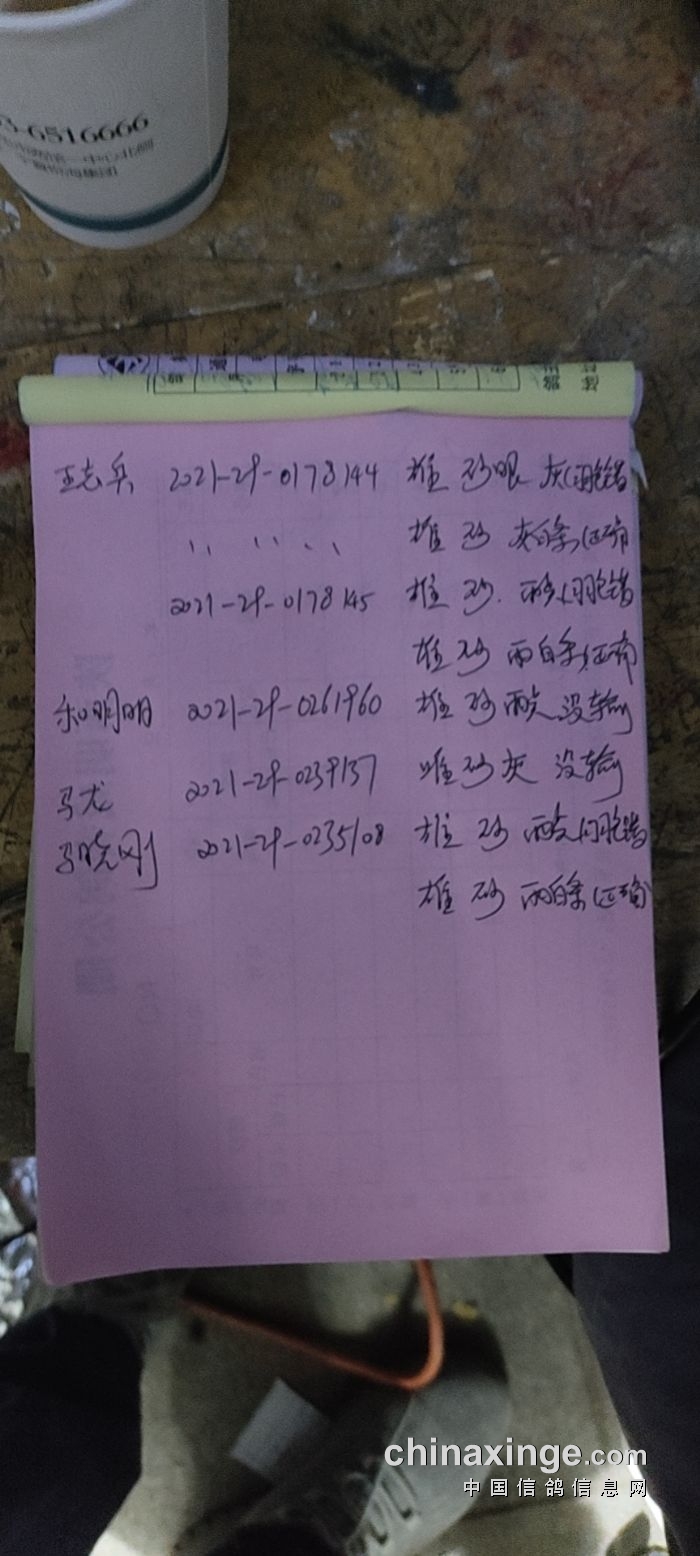 3-6516666
王志兵 2021-29-0178144 雄 砂眼 灰(羽色错
〃 〃 〃 雄 砂 灰白条(正确
2021-29-0178145 雄 砂 雨点(羽色错
雄 砂 雨白条(正确
和明明 2021-29-0261960 雄 砂 雨点 没输
马龙 2021-29-0239137 雄 砂 灰 没输
马晓刚 2021-29-0235108 雄 砂 雨点(羽色错
雄 砂 雨白条(正确
chinaxinge.com
中国信鸽信息网